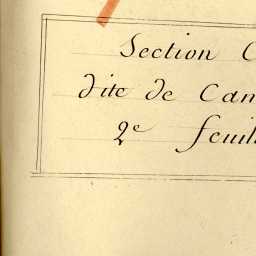 Section C
dite de Can
2e feuil